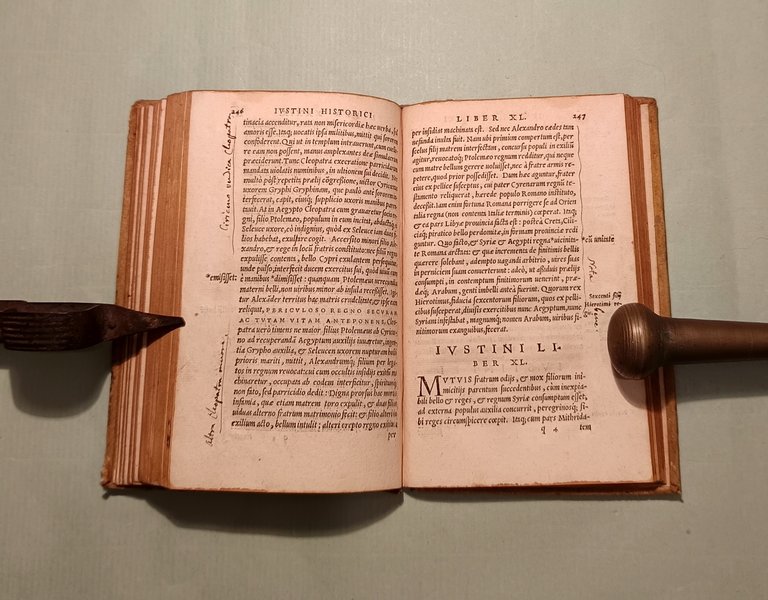 246
IVSTINI HISTORICI
tinacia accenditur, rata non misericordiæ hæc uerba, sed
amoris esse. Itaq; uocatis ipsa militibus, mittit qui sororem
confoderent. Qui ut in templum intrauerunt, cum euelle
re eam non possent, manus amplexantes deæ simulacrum
præciderunt. Tunc Cleopatra execratione parricidarum
mandata uiolatis numinibus, in ultionem sui decidit. Nec
multò pòst repetitis prælij
uxorem Gryphi Gryphinam, quæ paulò ante sororem in
terfecerat, capit, eiusq; supplicio uxoris manibus paren-
tauit. At in Aegypto Cleopatra cum grauaretur socio re-
gni, filio Ptolemæo, populum in eum incitat, abductaq; ei
Seleuce uxore, eò indignius, quòd ex Seleuce iam duos fi-
lios habebat, exulare cogit. Accersito minori filio Ale-
xandro, & rege in locū fratris constituto: nec filium regno
expulisse contenta, bello Cypri exulantem persequitur.
unde pulso, interficit ducem exercitus sui, quòd uiuum eum
*emisisset:
è manibus *dimisisset: quanquam Ptolemæus uerecundia
materni belli, non uiribus minor ab insula recessisset. Igi-
tur Alexāder territus hac matris crudelitate, & ipse eam
reliquit, PERICVLOSO REGNO SECVRAM
AC TVTAM VITAM ANTEPONENS. Cleo-
patra uerò timens ne maior filius Ptolemæus ab Cyrice-
no ad recuperandā Aegyptum auxilijs iuuaretur, ingen-
tia Grypho auxilia, & Seleucen uxorem nupturam hosti
prioris mariti, mittit, Alexandrumq; filium per lega-
tos in regnum reuocat: cui cum occultis insidijs exitium ma
chinaretur, occupata ab eodem interficitur, spiritumq;
non fato, sed parricidio dedit: Digna prorsus hac mortis
infamia, quæ etiam matrem toro expulit, & duas filias
uiduas alterno fratrum matrimonio fecit: & filio alteri in
exilium acto, bellum intulit; alteri erepto regno exitium
per
LIBER XL.
247
per insidias machinata est. Sed nec Alexandro cædes tam
nefanda inulta fuit. Nam ubi primùm compertum est, per
scelus filij matrem interfectam, concursu populi in exiliū
agitur, reuocatoq; Ptolemæo regnum redditur, qui neque
cum matre bellum gerere uoluisset, nec à fratre armis re-
petere, quod prior possedisset. Dum hæc aguntur, frater
eius ex pellice susceptus, cui pater Cyrenarum regnū te-
stamento reliquerat, hærede populo Romano instituto,
decessit. Iam enim fortuna Romana porrigere se ad Orien
talia regna (non contenta Italiæ terminis) cœperat. Itaq;
& ea pars Libyæ prouincia facta est: postea Creta, Cili-
ciaq; piratico bello perdomitæ, in formam prouinciæ redi
guntur. Quo facto, & Syriæ & Aegypti regna *uicinita-
*cū uninte
te Romana arctata: & quæ incrementa de finitimis bellis
quærere solebant, adempto uagandi arbitrio, uires suas
in perniciem suam conuerterunt: adeò, ut assiduis prælijs
consumpti, in contemptum finitimorum uenerint, præ-
dæq; Arabum, genti imbelli anteà fuerint. Quorum rex
Hierotimus, fiducia sexcentorum filiorum, quos ex pelli-
cibus susceperat, diuisis exercitibus nunc Aegyptum, nunc
Syriam infestabat, magnumq; nomen Arabum, uiribus fi-
nitimorum exanguibus, fecerat.
Nota
Sexcenti filij
Hierotimi re
IVSTINI LI-
BER XL.
MVTVIS fratrum odijs, & mox filiorum ini-
micitijs parentum succedentibus, cum inexpia-
bili bello & reges, & regnum Syriæ consumptum esset,
ad externa populus auxilia concurrit, peregrinosq; si-
bi reges circumspicere cœpit. Itaq; cum pars Mithrida-
q 4
tem